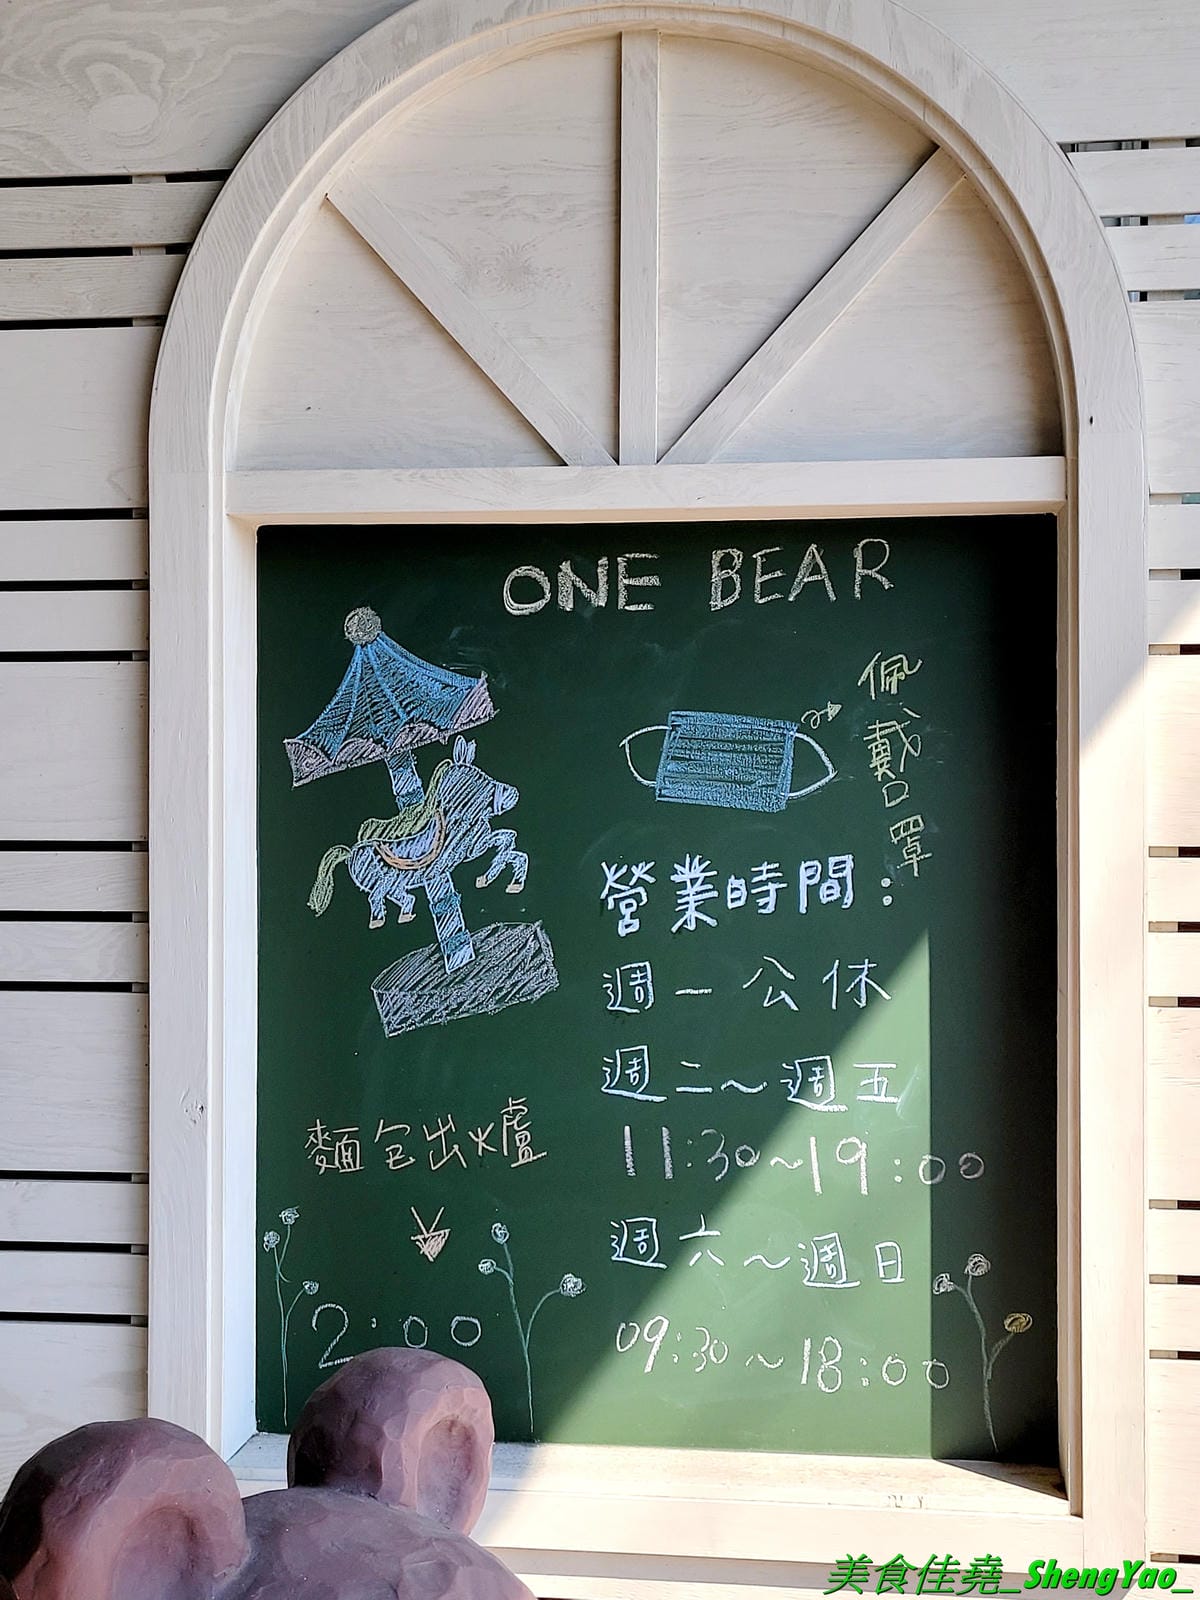 ONE BEAR
佩戴口罩
營業時間:
週一公休
週二~週五
11:30~19:00
週六~週日
09:30~18:00
麵包出爐
2:00
美食佳堯_ShengYao_